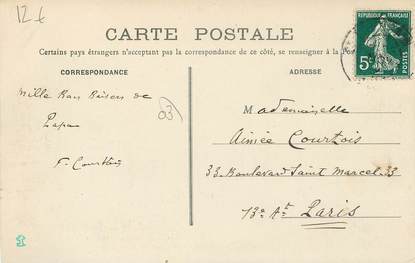 12 €
CARTE POSTALE
Certains pays étrangers n'acceptant pas la correspondance de ce côté, se renseigner à la Pos
RÉPUBLIQUE FRANÇAISE
5c
POSTES
CORRESPONDANCE
ADRESSE
Mille Bons Baisers de
Papa
F. Courtois
03)
Mademoiselle
Aimée Courtois
33 Boulevard Saint Marcel 33
13e Art
Paris